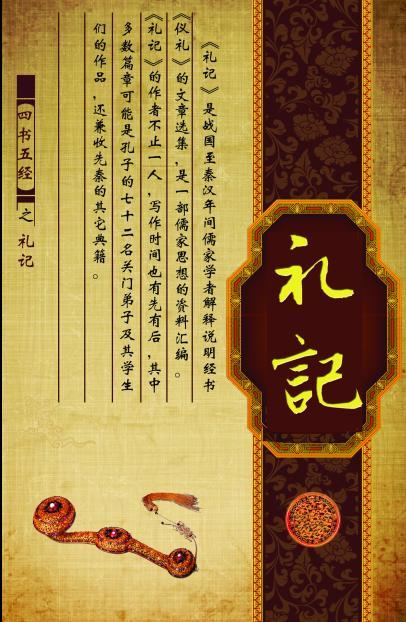 礼記
《礼记》是战国至秦汉年间儒家学者解释说明经书
《仪礼》的文章选集，是一部儒家思想的资料汇编。
《礼记》的作者不止一人，写作时间也有先有后，其中
多数篇章可能是孔子的七十二名关门弟子及其学生
们的作品，还兼收先秦的其它典籍。
四书五经之礼记